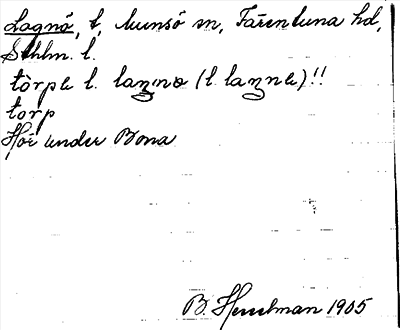 Lagnö, t, Munsö sn, Färentuna hd,
Sthlm. l.
tòrpɩ l. laʒnə (l. laʒnɩ)!!
torp
Hör under Bona
B. Hesselman 1905